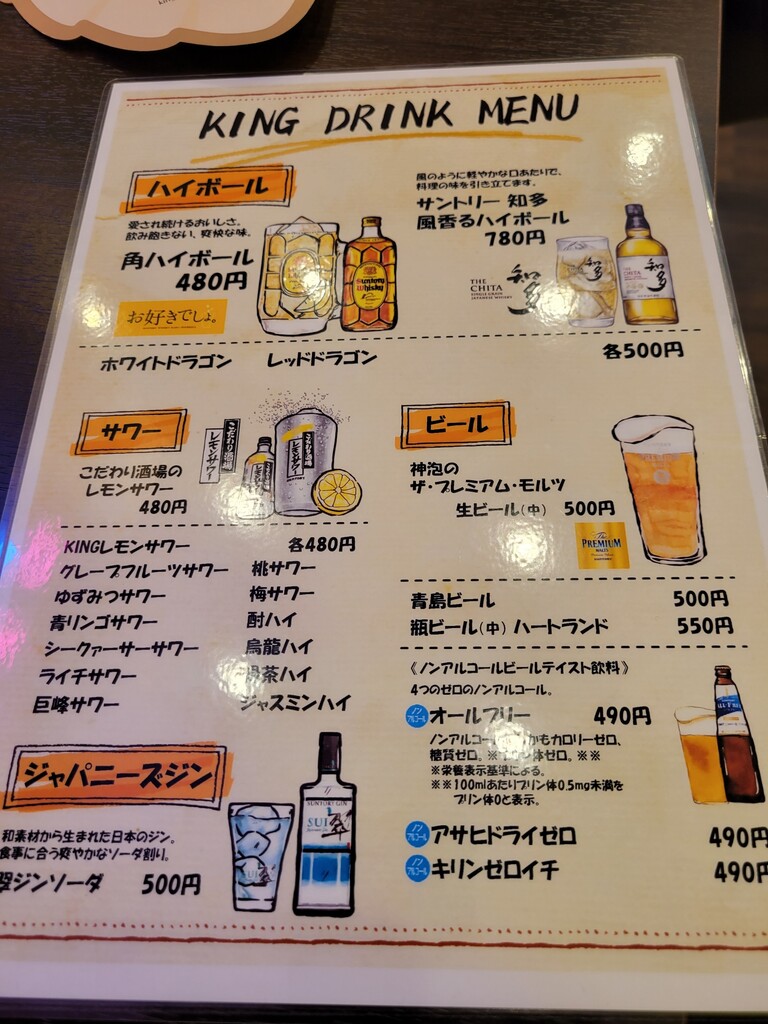 KING DRINK MENU
ハイボール
愛され続けるおいしさ。
飲み飽きない、爽快な味。
角ハイボール
480円
お好きでしょ。
Suntory
Whisky
風のように軽やかな口あたりで、
料理の味を引き立てます。
サントリー 知多
風香るハイボール
780円
THE
CHITA
SINGLE GRAIN
JAPANESE WHISKY
知多
知多
THE
CHITA
ホワイトドラゴン レッドドラゴン 各500円
サワー
こだわり酒場の
レモンサワー
480円
こだわり酒場の
レモンサワー
KINGレモンサワー 各480円
グレープフルーツサワー 桃サワー
ゆずみつサワー 梅サワー
青リンゴサワー 酎ハイ
シークァーサーサワー 烏龍ハイ
ライチサワー 茶ハイ
巨峰サワー ジャスミンハイ
ビール
神泡の
ザ・プレミアム・モルツ
生ビール(中) 500円
The
PREMIUM
MALT'S
SUNTORY
青島ビール 500円
瓶ビール(中) ハートランド 550円
《ノンアルコールビールテイスト飲料》
4つのゼロのノンアルコール。
ノンアルコール オールフリー 490円
ノンアルコール かもカロリーゼロ、
糖質ゼロ。 体ゼロ。※※
※栄養表示基準による。
※※100mlあたりプリン体0.5mg未満を
プリン体0と表示。
ノンアルコール アサヒドライゼロ 490円
ノンアルコール キリンゼロイチ 490円
ジャパニーズジン
和素材から生まれた日本のジン。
食事に合う爽やかなソーダ割り。
翠ジンソーダ 500円
SUNTORY GIN
SUI
翠